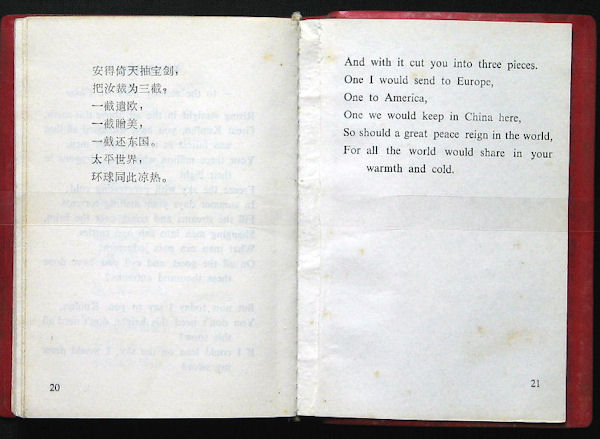 安得倚天抽宝剑，
把汝裁为三截？
一截遗欧，
一截赠美，
一截还东国。
太平世界，
环球同此凉热。
20
And with it cut you into three pieces.
One I would send to Europe,
One to America,
One we would keep in China here,
So should a great peace reign in the world,
For all the world would share in your
warmth and cold.
21